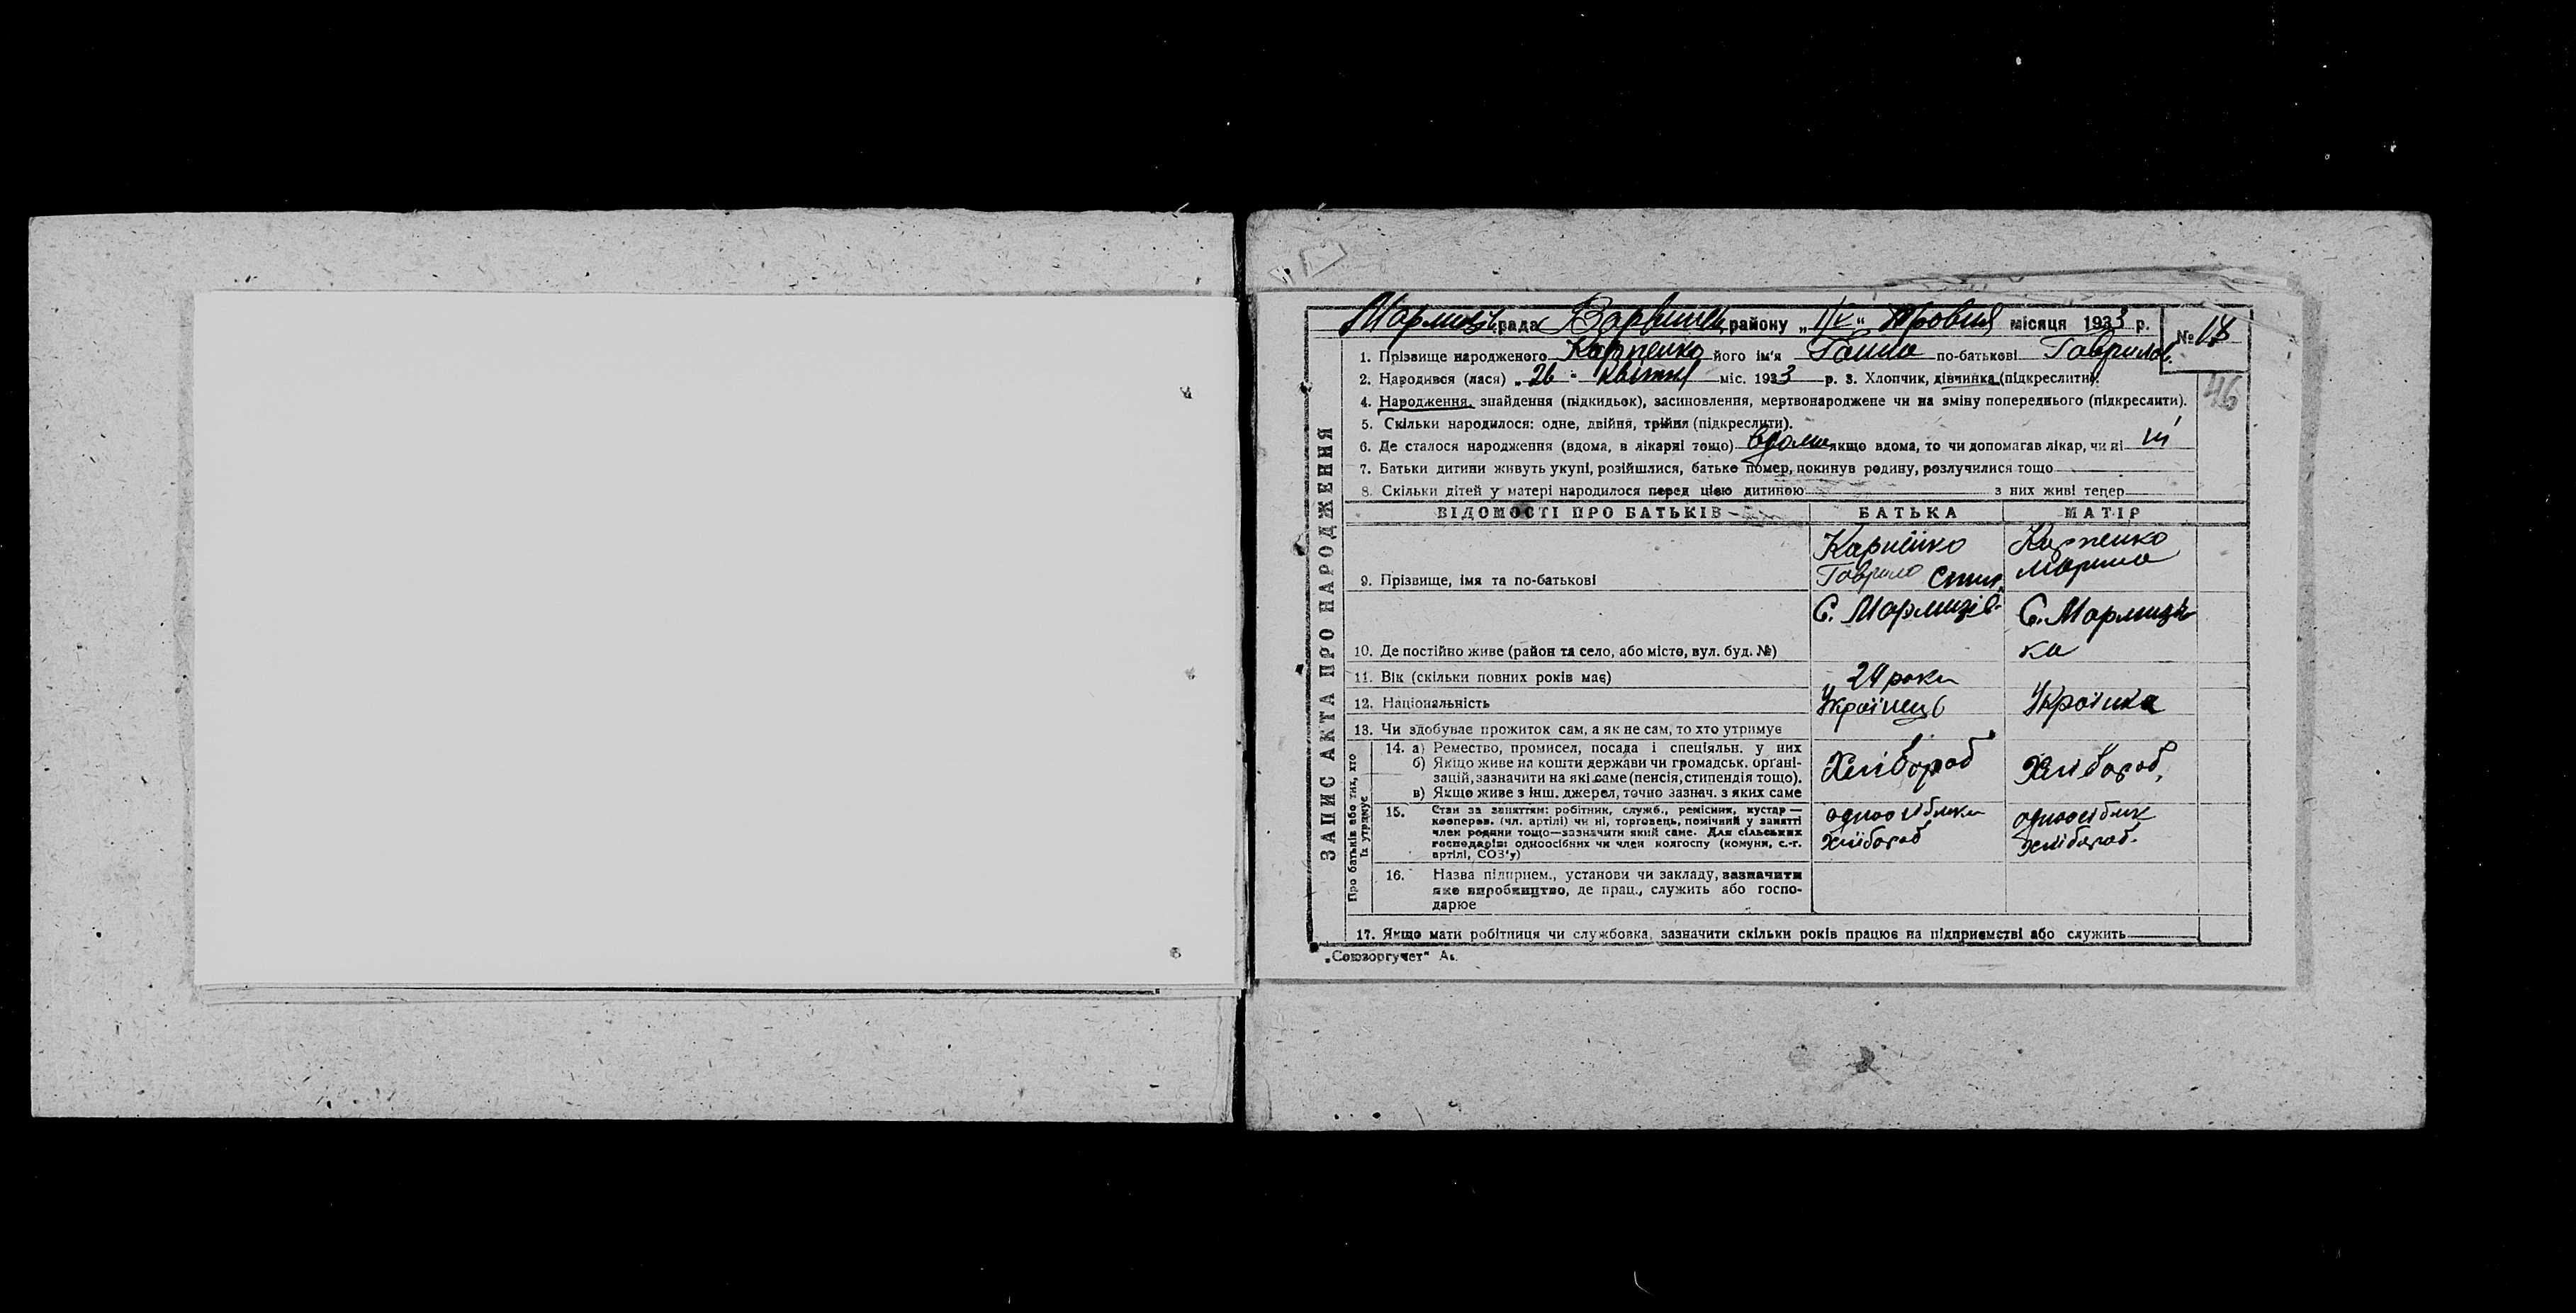 рада Варвинськ району „ " травня місяця 1933 р.
№ 18
1. Прізвище народженого Карпенко його ім'я Ганна по-батькові Гаврилов.
2. Народився (лася) „ 26 " квітня міс. 1933 р. 3. Хлопчик, дівчинка (підкреслити).
46
4. Народження, знайдення (підкидьок), засиновлення, мертвонароджене чи на зміну попереднього (підкреслити).
5. Скільки народилося: одне, двійня, трійня (підкреслити).
6. Де сталося народження (вдома, в лікарні тощо) вдома якщо вдома, то чи допомагав лікар, чи ні ні
7. Батьки дитини живуть укупі, розійшлися, батько помер, покинув родину, розлучилися тощо
8. Скільки дітей у матері народилося перед цією дитиною з них живі тепер
ЗАПИС АКТА ПРО НАРОДЖЕННЯ
ВІДОМОСТІ ПРО БАТЬКІВ БАТЬКА МАТІР
Карпенко Карпенко
9. Прізвище, імя та по-батькові Гаврило Марина
С. Мармизів. С. Мармизів
ка
10. Де постійно живе (район та село, або місто, вул. буд. №)
11. Вік (скільки повних років має) 24 роки
12. Національність Українець Українка
13. Чи здобуває прожиток сам, а як не сам, то хто утримує
Про батьків або тих, хто
їх утримує
14. а) Ремество, промисел, посада і спеціяльн. у них
б) Якщо живе на кошти держави чи громадськ. органі-
зацій, зазначити на які саме (пенсія, стипендія тощо).
в) Якщо живе з інш. джерел, точно зазнач. з яких саме
Хлібороб Хлібороб.
15. Стан за заняттям: робітник, служб., ремісник, кустар —
кооперов. (чл. артілі) чи ні, торговець, помічний у занятті
член родини тощо—зазначити який саме. Для сільських
господарів: одноосібник чи член колгоспу (комуни, с.-г.
артілі, СОЗ'у)
одноосібник одноосібник
хлібороб хлібороб.
16. Назва підприєм., установи чи закладу, зазначити
яке виробництво, де прац., служить або госпо-
дарює
17. Якщо мати робітниця чи службовка, зазначити скільки років працює на підприємстві або служить
„Союзоргучет"